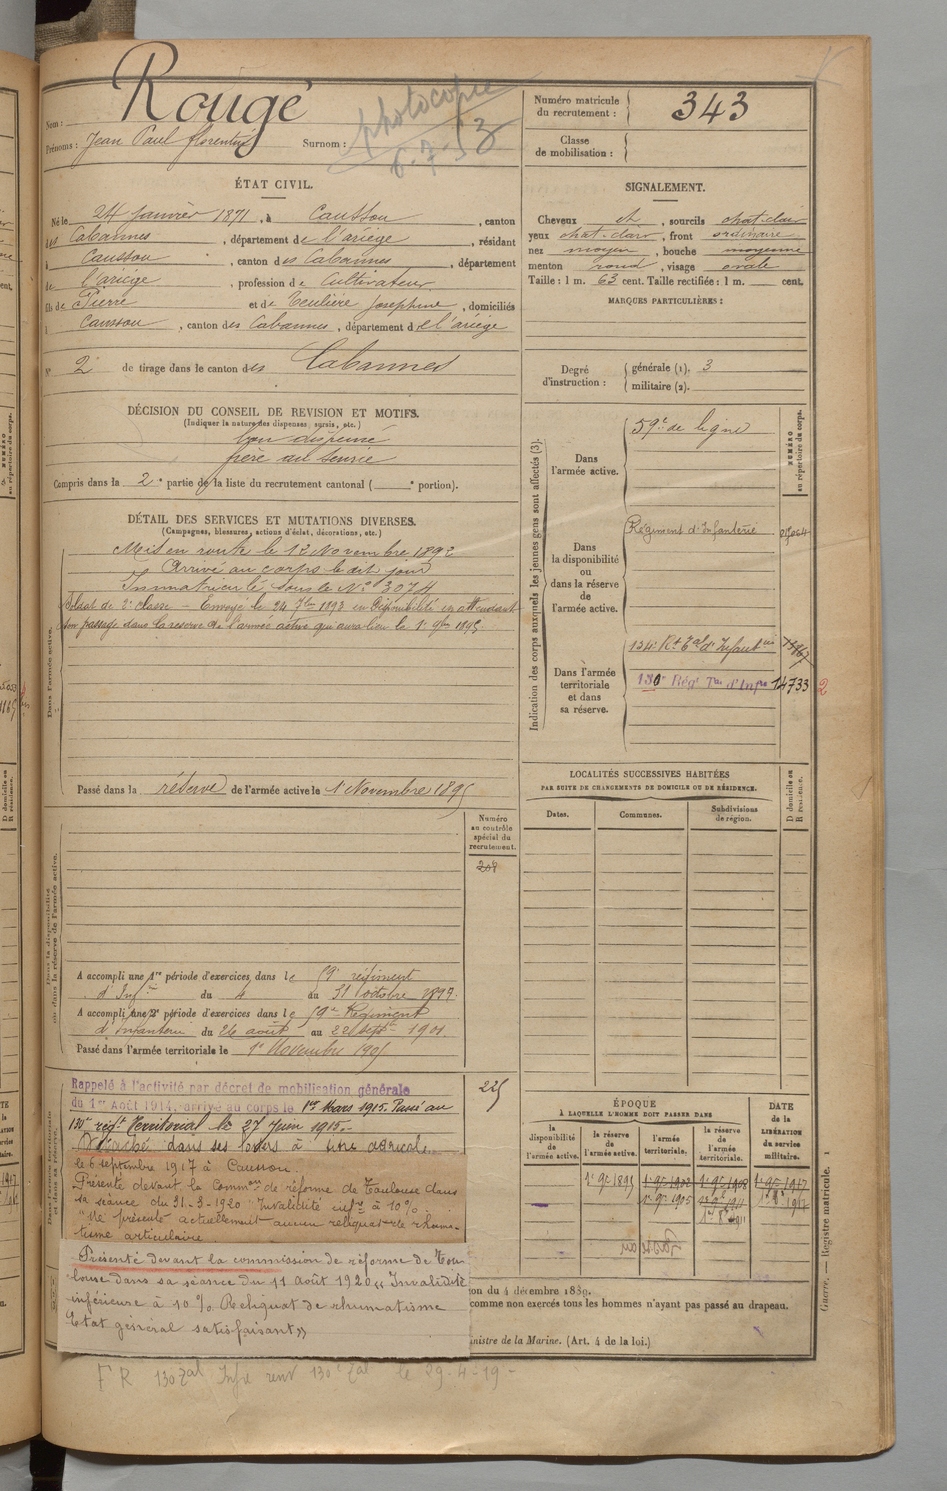 Nom : Rougé
Prénoms : Jean Paul florentin Surnom :
photocopie
6-7-53
Numéro matricule du recrutement : 343
Classe de mobilisation :
ÉTAT CIVIL.
Né le 24 janvier 1871, à Caussou, canton
des Cabannes, département de l'ariège, résidant
à Caussou, canton des Cabannes, département
de l'ariège, profession de Cultivateur
fils de Pierre et de Teulière Josephine, domiciliés
à Caussou, canton des Cabannes, département de l'ariège
N° 2 de tirage dans le canton des Cabannes
SIGNALEMENT.
Cheveux ch, sourcils chat. clair
yeux chat. clair, front ordinaire
nez moyen, bouche moyenne
menton rond, visage ovale
Taille : 1 m. 63 cent. Taille rectifiée : 1 m. cent.
MARQUES PARTICULIÈRES :
Degré d'instruction : générale (1). 3
militaire (2).
DÉCISION DU CONSEIL DE REVISION ET MOTIFS.
(Indiquer la nature des dispenses, sursis, etc.)
bon dispensé
frère au service
Compris dans la 2e partie de la liste du recrutement cantonal ( e portion).
DÉTAIL DES SERVICES ET MUTATIONS DIVERSES.
(Campagnes, blessures, actions d'éclat, décorations, etc.)
Dans l'armée active.
Mis en route le 12 Novembre 1892
Arrivé au corps le dit jour
Immatriculé sous le N° 3074
Soldat de 2e classe - Envoyé le 24 7bre 1893 en disponibilité en attendant
son passage dans la réserve de l'armée active qui aura lieu le 1er 9bre 1895
Passé dans la réserve de l'armée active le 1er Novembre 1895
Indication des corps auxquels les jeunes gens sont affectés (3).
NUMÉRO au répertoire du corps.
Dans l'armée active.
59e de ligne
Dans la disponibilité ou dans la réserve de l'armée active.
Régiment d'Infanterie
Dans l'armée territoriale et dans sa réserve.
134e Rt Tal d'Infanterie
130e Régt Tal d'Infie 14733 2
LOCALITÉS SUCCESSIVES HABITÉES
PAR SUITE DE CHANGEMENTS DE DOMICILE OU DE RÉSIDENCE.
Dates. Communes. Subdivisions de région. D domicile ou R résidence.
Dans la disponibilité ou dans la réserve de l'armée active.
Numéro au contrôle spécial du recrutement.
208
A accompli une 1re période d'exercices dans le 59e régiment
d'Infie du 4 au 31 octobre 1897.
A accompli une 2e période d'exercices dans le 59e Régiment
d'Infanterie du 26 août au 22 septre 1901
Passé dans l'armée territoriale le 1er Novembre 1905
225
Rappelé à l'activité par décret de mobilisation générale
du 1er Août 1914. arrivé au corps le 1er Mars 1915. Passé au
130e régt Territorial le 27 Juin 1915.-
Détaché dans ses foyers à titre agricole
le 6 septembre 1917 à Caussou.
Présenté devant la Common de réforme de Toulouse dans
sa séance du 31-3-1920 Invalidité infre à 10%
"Ne présente actuellement aucun reliquat de rhuma-
tisme articulaire
Présenté devant la commission de réforme de Tou
louse dans sa séance du 11 août 1920 « Invalidité
inférieure à 10% Reliquat de rhumatisme
Etat général satisfaisant »
ÉPOQUE
À LAQUELLE L'HOMME DOIT PASSER DANS
la disponibilité de l'armée active. la réserve de l'armée active. l'armée territoriale. la réserve de l'armée territoriale.
DATE de la LIBÉRATION du service militaire.
1er 9bre 1895 1er 9bre 1902 1er 9bre 1908 1er 9bre 1917
1er 9bre 1905
ion du 4 décembre 1889.
comme non exercés tous les hommes n'ayant pas passé au drapeau.
inistre de la Marine. (Art. 4 de la loi.)
Guerre. — Registre matricule. 1
FR 130 Tal Infie 130e Tal le 29-4-19-